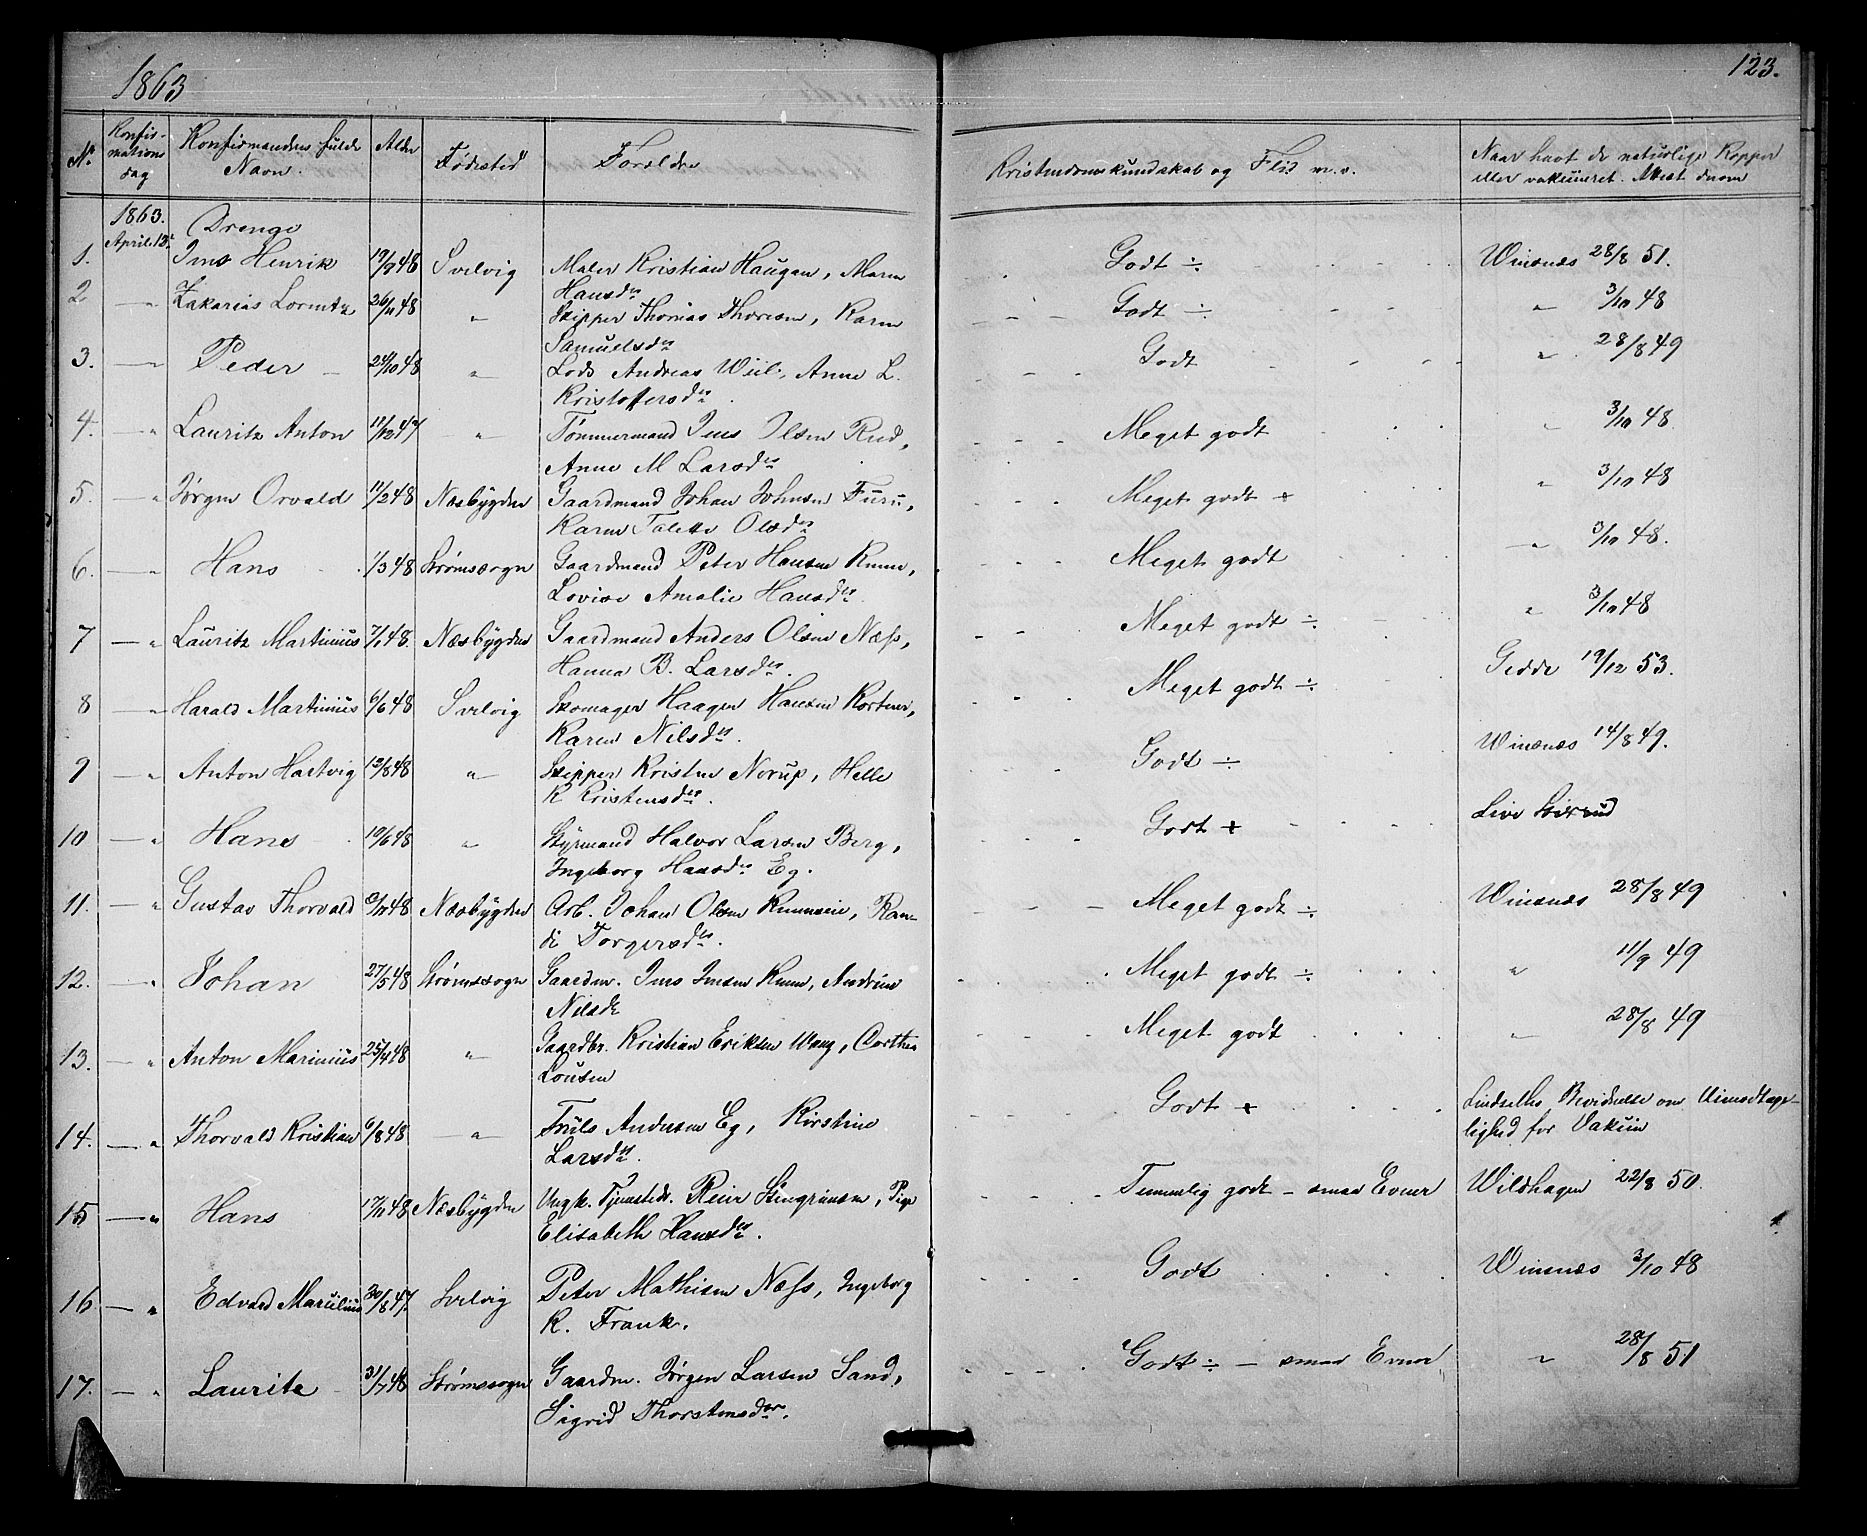 1863
123.
Nr. Konfir- mations dag Konfirmandens fulde Navn. Alder Fødested Forældre Kristendomskundskab og Flid m.v. Naar havt de naturlige Kopper eller vakcineret. Attest derom
1863. April 12. Drenge
1. Jens Henrik 19/9 48 Svelvig Maler Kristian Haugan, Maren Godt ÷ Winsnæs 28/8 51.
Hansdr
2 — " Zakarias Lorentz 26/11 48 " Skipper Thomas Thoresen, Karen Godt ÷ " 3/10 48
Samuelsdr
3. — " Peder 24/10 48 " Lods Andreas Wiil, Anne L. Godt " 28/8 49
Kristoffersdr.
4. — " Lauritz Anton 11/12 47 " Tømmermand Jens Olsen Rud, Meget godt " 3/10 48
Anne M Larsdr
5. — " Jørgen Orvald 11/2 48 Næsbygden Gaardmand Johan Johnsen Furu, Meget godt + " 3/10 48
Karen Talette Olsdr
6. — " Hans 1/3 48 Strømsogn Gaardmand Peter Hansen, Meget godt " 3/10 48.
Lovise Amalie Hansdr.
7 — " Lauritz Martinius 7/1 48. Næsbygden Gaardmand Anders Olsen Næss, Meget godt ÷ " 3/10 48
Hanna B. Larsdr.
8 — " Harald Martinius 6/6 48 Svelvig Skomager Haagen Hansen, Meget godt ÷ Gedde 19/12 53.
Karen Nilsdr.
9 — " Anton Hartvig 12/8 48 " Skipper Kristen Norup, Helle Godt ÷ Winsnæs 14/8 49.
K Kristensdr.
10 — " Hans 10/6 48 " Styrmand Halvor Larsen Berg, Godt + Live
Ingeborg Hansdr Eg.
11. — " Gustav Thorvald 48 Næsbygden Arb. Johan Olsen, Ran- Meget godt ÷ Winsnæs 28/8 49
di Torgersdr.
12. — " Johan 27/5 48 Strømsogn Gaardm. Jens Jensen, Andrine Meget godt ÷ " 11/9 49
Nilsdr
13. — " Anton Marinius 25/4 48 " Gaardbr. Kristian Eriksen Wang, Dorthea Meget godt " 28/8 49
14. — " Thorvald Kristian 6/8 48 — " Truls Andersen Eg, Kirstine Godt + Lindseths Bevidnelse om Uimodtage-
Larsdr. lighed for Vakcin
15 — " Hans 17/11 48 Næsbygden Ungk. Tjenestedr. Reier Stengrimsen, Pige Temmelig godt – smaa Evner Wildhagen 22/8 50.
Elisabeth Hansdr.
16. — " Edvard 30/8 47. Svelvig Peter Mathisen Næss, Ingeborg Godt Winsnæs 3/10 48
K. Frank.
17. — " Lauritz 31/7 48 Strømsogn Gaardm. Jørgen Larsen Sand, Godt ÷ – smaa Evner " 28/8 51
Sigrid Thorstensdr.